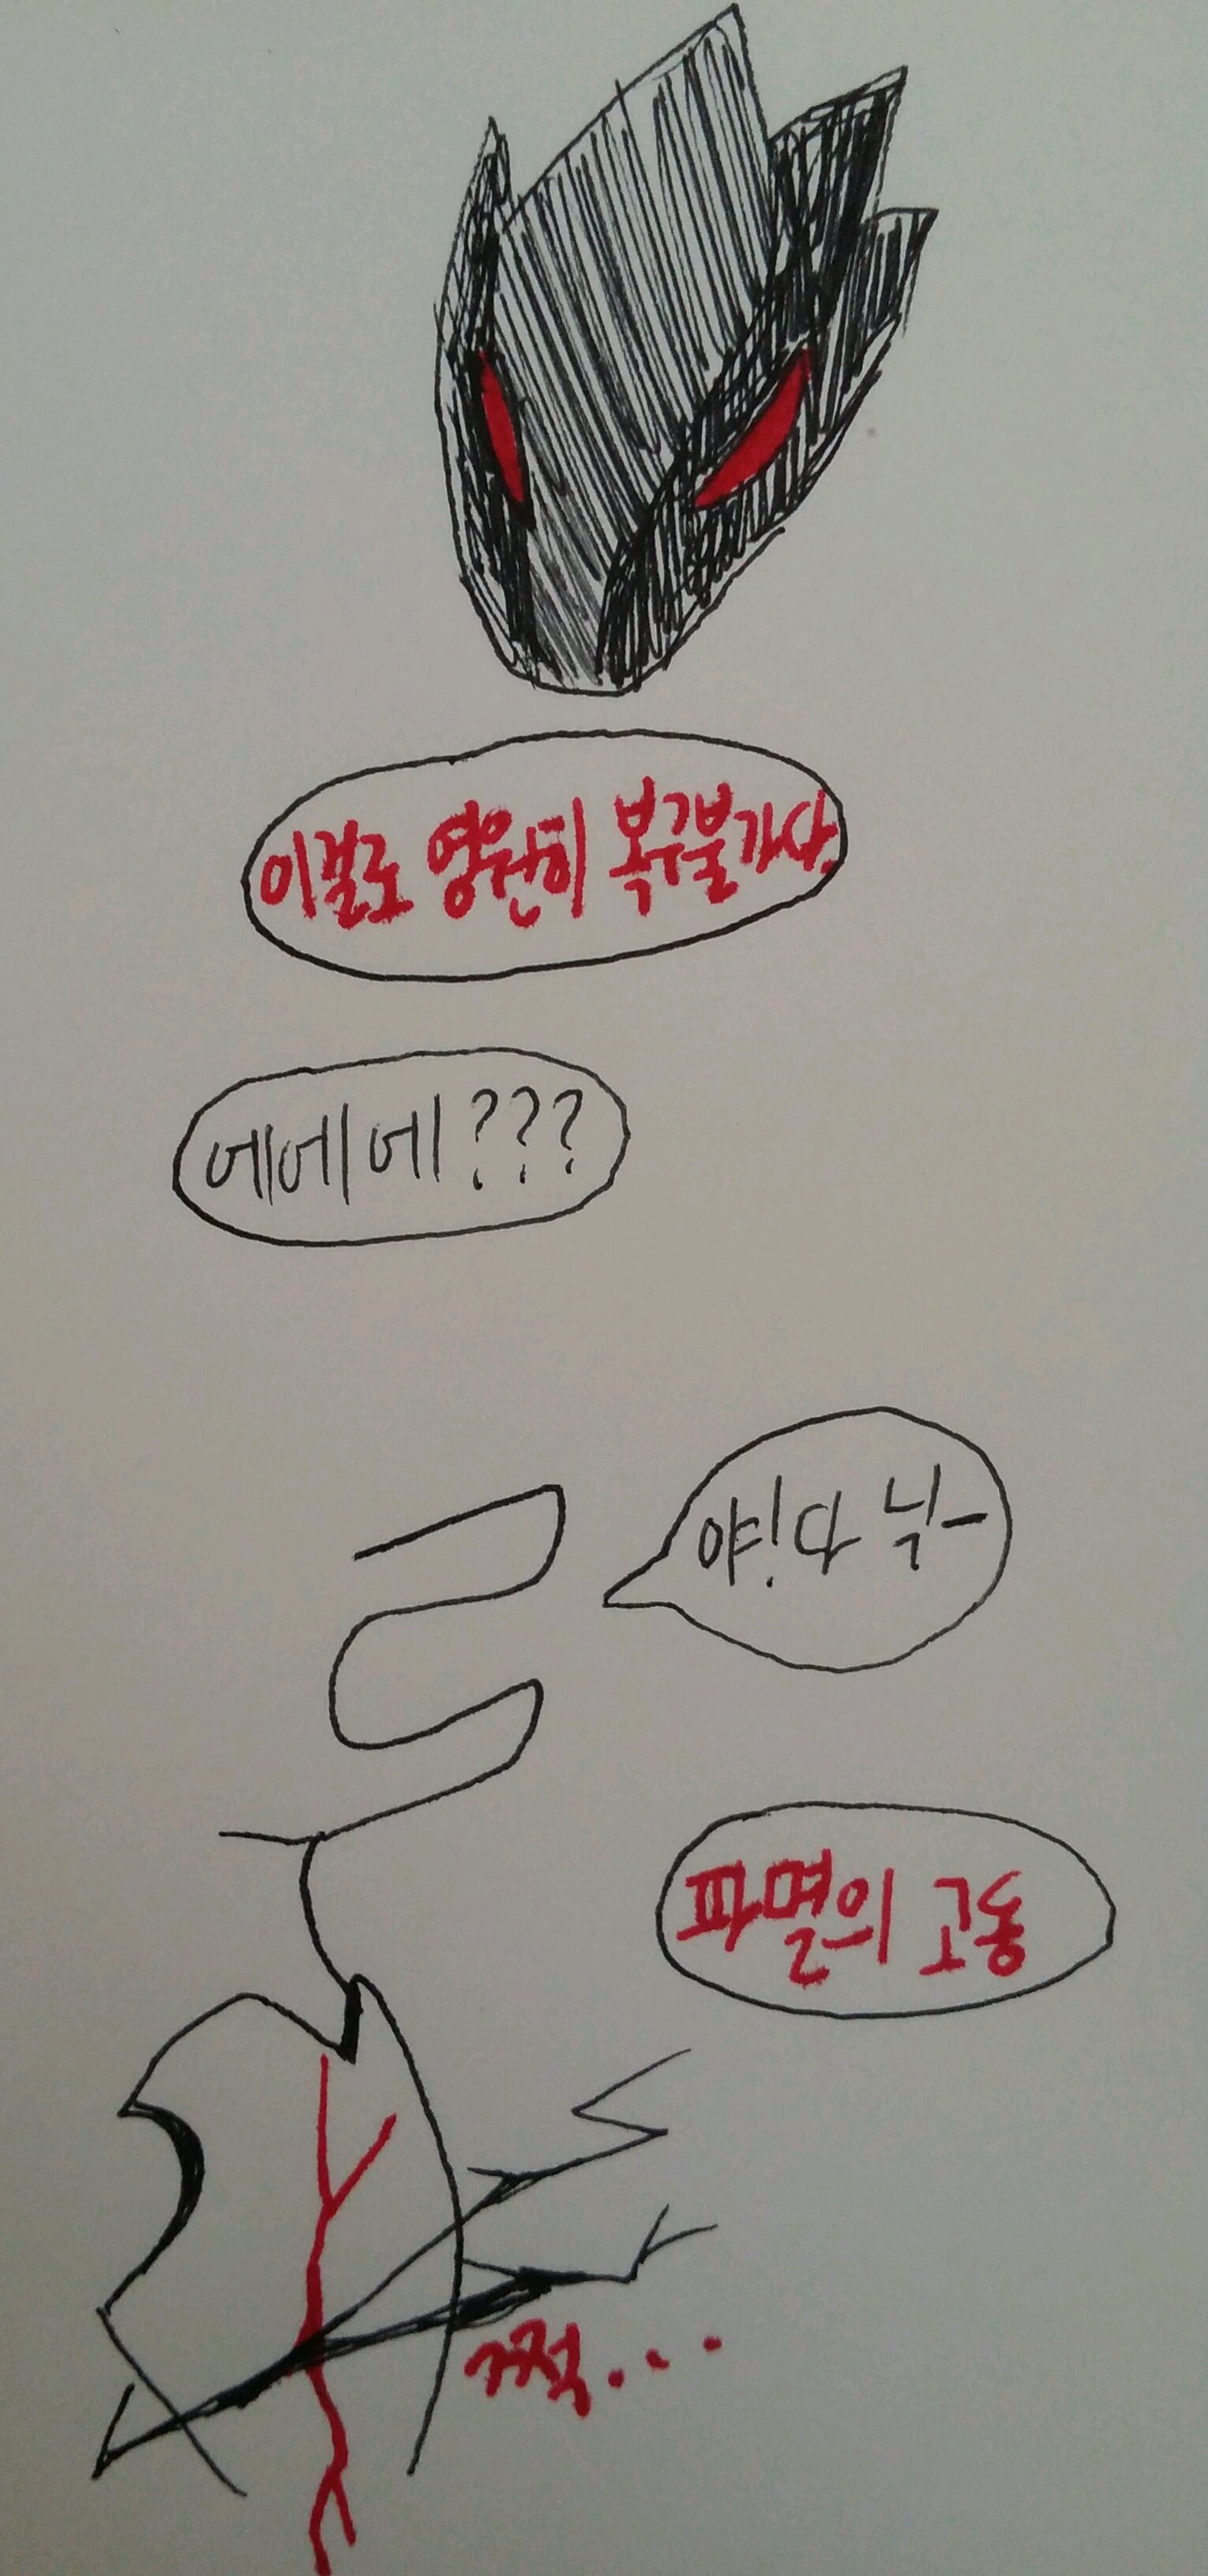 이걸로 영원히 복구불가다.
에에에???
야! 다 닉-
파멸의 고동
쩍...